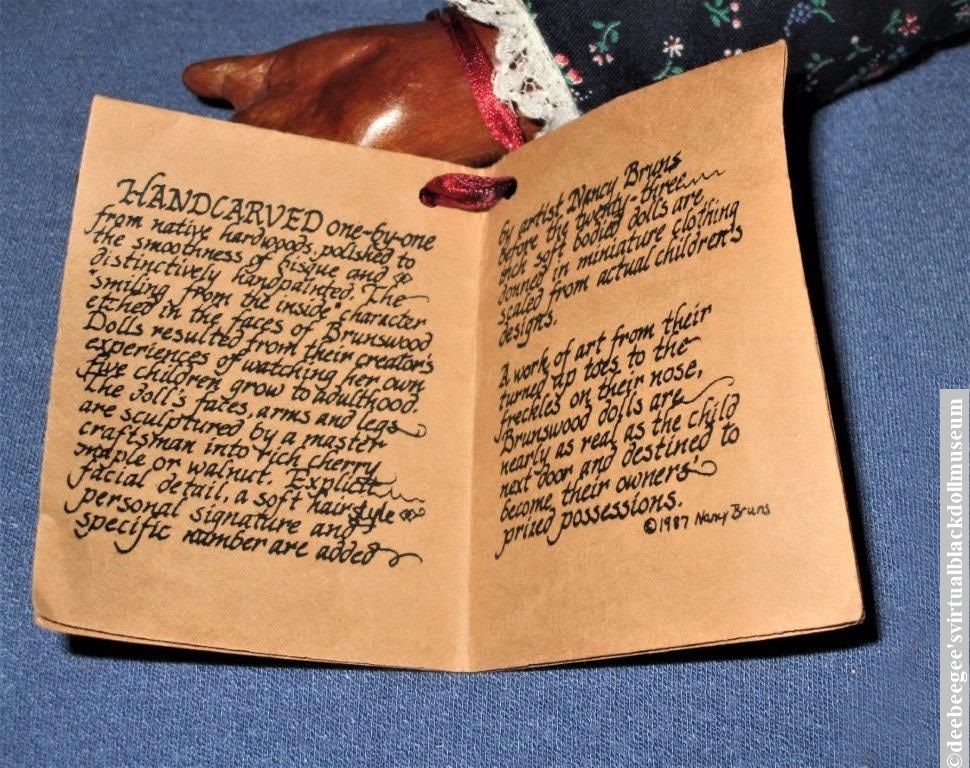 HANDCARVED one-by-one
from native hardwoods, polished to
the smoothness of bisque and
distinctively handpainted. The
"smiling from the inside" character
etched in the faces of Brunswood
Dolls resulted from their creator's
experiences of watching her own
five children grow to adulthood.
The doll's faces, arms and legs
are sculptured by a master
craftsman into rich cherry
maple or walnut. Explicit
facial detail, a soft hairstyle
personal signature and
specific number are added
by artist Nancy Bruns
before the twenty-three
inch soft bodied dolls are
donned in miniature clothing
scaled from actual children's
designs.
A work of art from their
turned up toes to the
freckles on their nose,
Brunswood dolls are
nearly as real as the child
next door and destined to
become their owners'
prized possessions.
©1987 Nancy Bruns
©deebeegee'svirtualblackdollmuseum